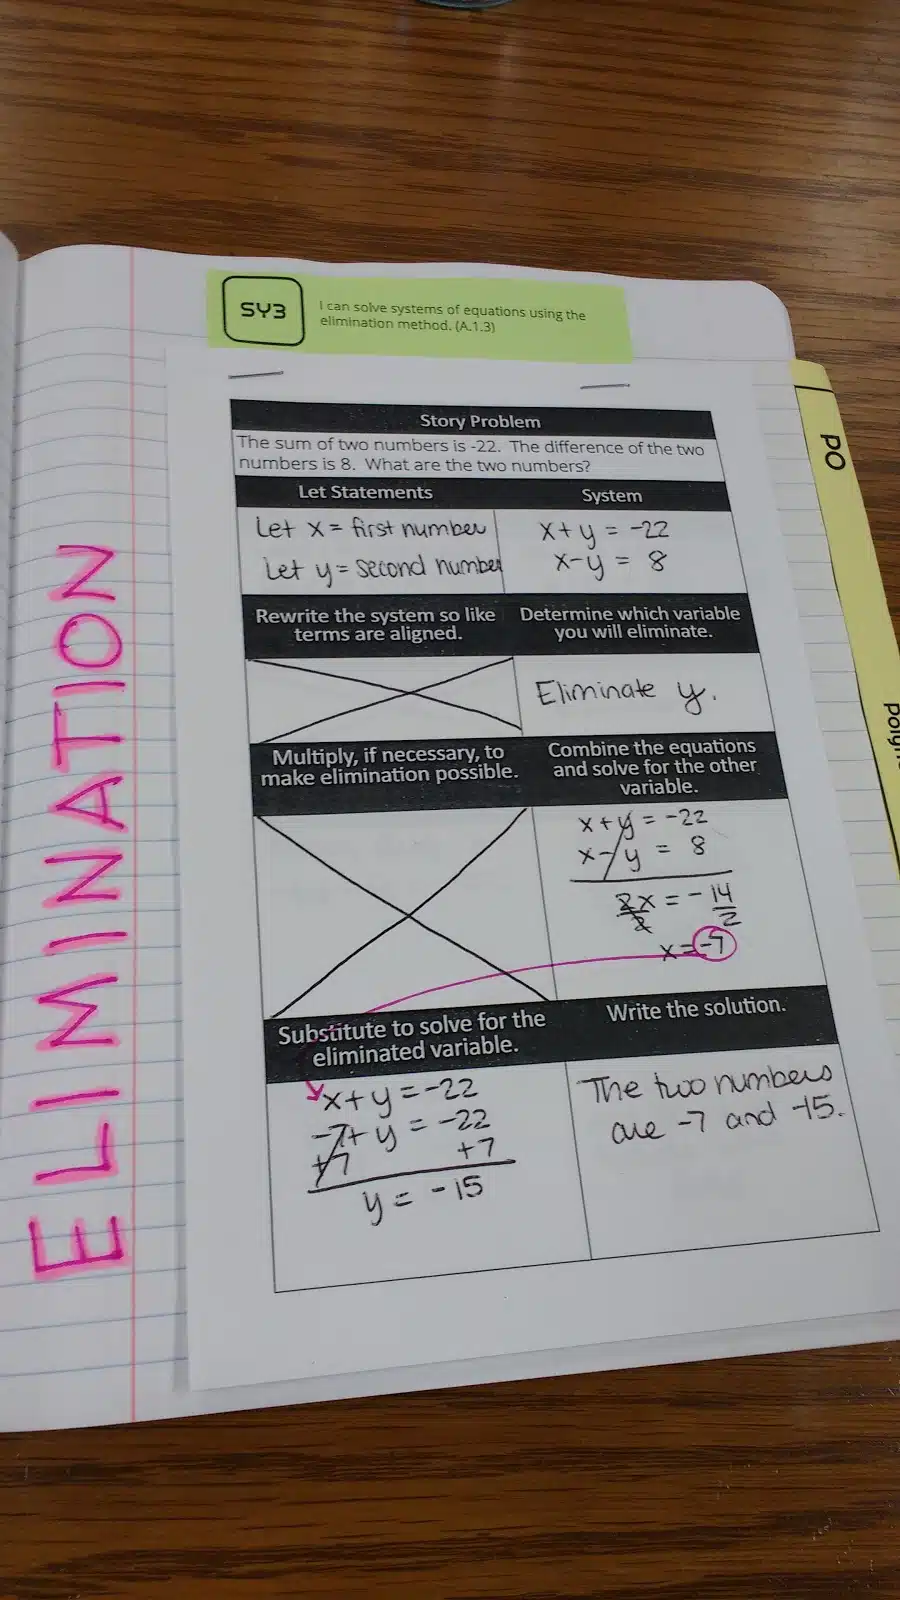 SY3
I can solve systems of equations using the
elimination method. (A.1.3)
ELIMINATION
PO
Story Problem
The sum of two numbers is -22. The difference of the two
numbers is 8. What are the two numbers?
Let Statements
Let x = first number
Let y = second number
System
x + y = -22
x - y = 8
Rewrite the system so like
terms are aligned.
Determine which variable
you will eliminate.
Eliminate y.
Multiply, if necessary, to
make elimination possible.
Combine the equations
and solve for the other
variable.
x + y = -22
x - y = 8
2x = -14
2 2
x = -7
Substitute to solve for the
eliminated variable.
x + y = -22
-7 + y = -22
+7 +7
y = -15
Write the solution.
The two numbers
are -7 and -15.